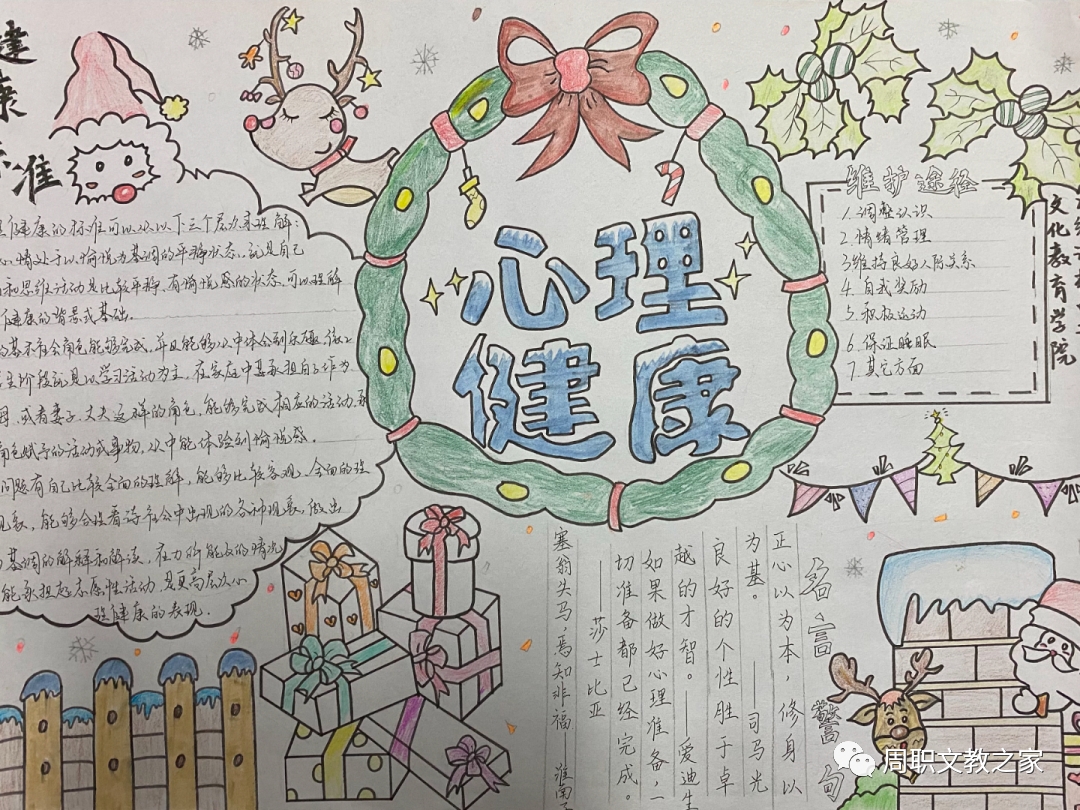 心理
健康
建
康
标
准
健康的标准可以从以下三个层次来理解:
心情处于以愉悦为基调的平稳状态,就是自己
和思维活动是比较平稳,有愉悦感的状态,可以理解
健康的背景或基础。
的基本社会角色能够完成,并且能够从中体会到乐趣,
阶段就是以学习活动为主,在家庭中其承担自子作为
或者妻子、丈夫这样的角色,能够完成相应的活动,
角色赋予的活动或事物,从中能体验到愉悦感。
问题有自己比较全面的理解,能够比较客观、全面的理
现象,能够合理看待社会中出现的各种现象,做出
基调的解释和解读,在力所能及的情况
能承担起志愿性活动,是更高层次心
理健康的表现。
维护途径
1.调整认识
2.情绪管理
3维持良好人际关系
4.自我奖励
5.积极运动
6.保证睡眠
7.其它方面
文化教育学院
名言警句
正心以为本,修身以
为基。 ——司马光
良好的个性胜于卓
越的才智。——爱迪生
如果做好心理准备,一
切准备都已经完成。
——莎士比亚
塞翁失马,焉知非福——淮南子
周职文教之家